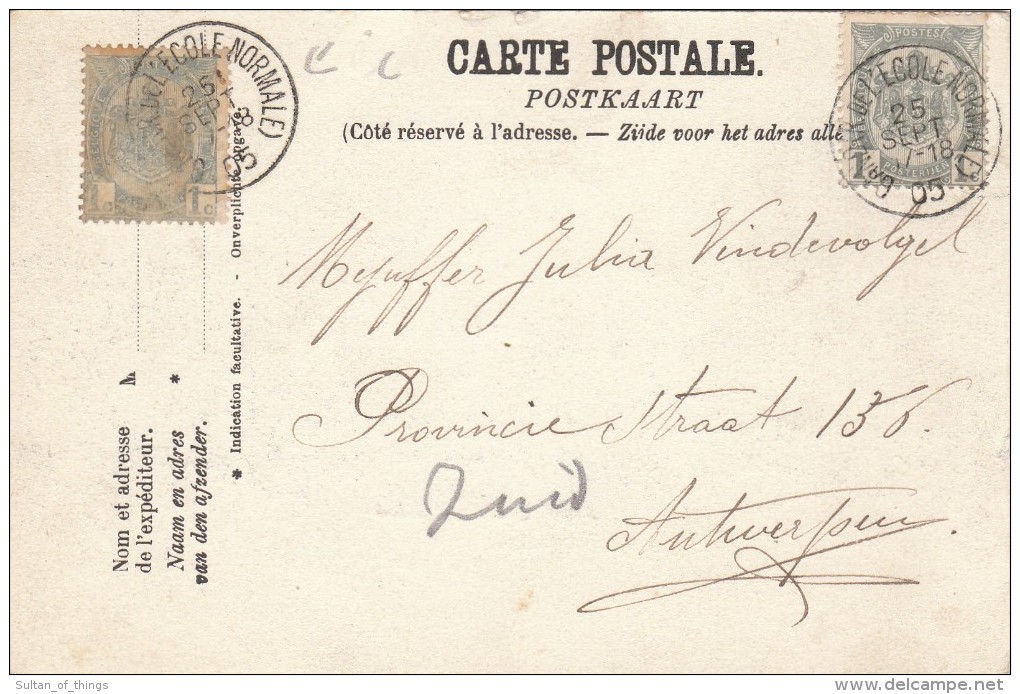 CARTE POSTALE.
POSTKAART
(Côté réservé à l'adresse. — Zijde voor het adres alle
Mejuffer Julia Vindevolgel
Provincie Straat 136.
Zuid
Antwerpen.
Nom et adresse
de l'expéditeur.
Naam en adres
van den afzender.
M
*
* Indication facultative. - Onverplichte opgave.
ECOLE-NORMALE)
25
SEPT
18
05
1c 1c
POSTES
ECOLE-NORMALE)
25
SEPT
17-18
05
GAND
POSTERIJEN
1c 1c
Sultan_of_things
delcampe.net